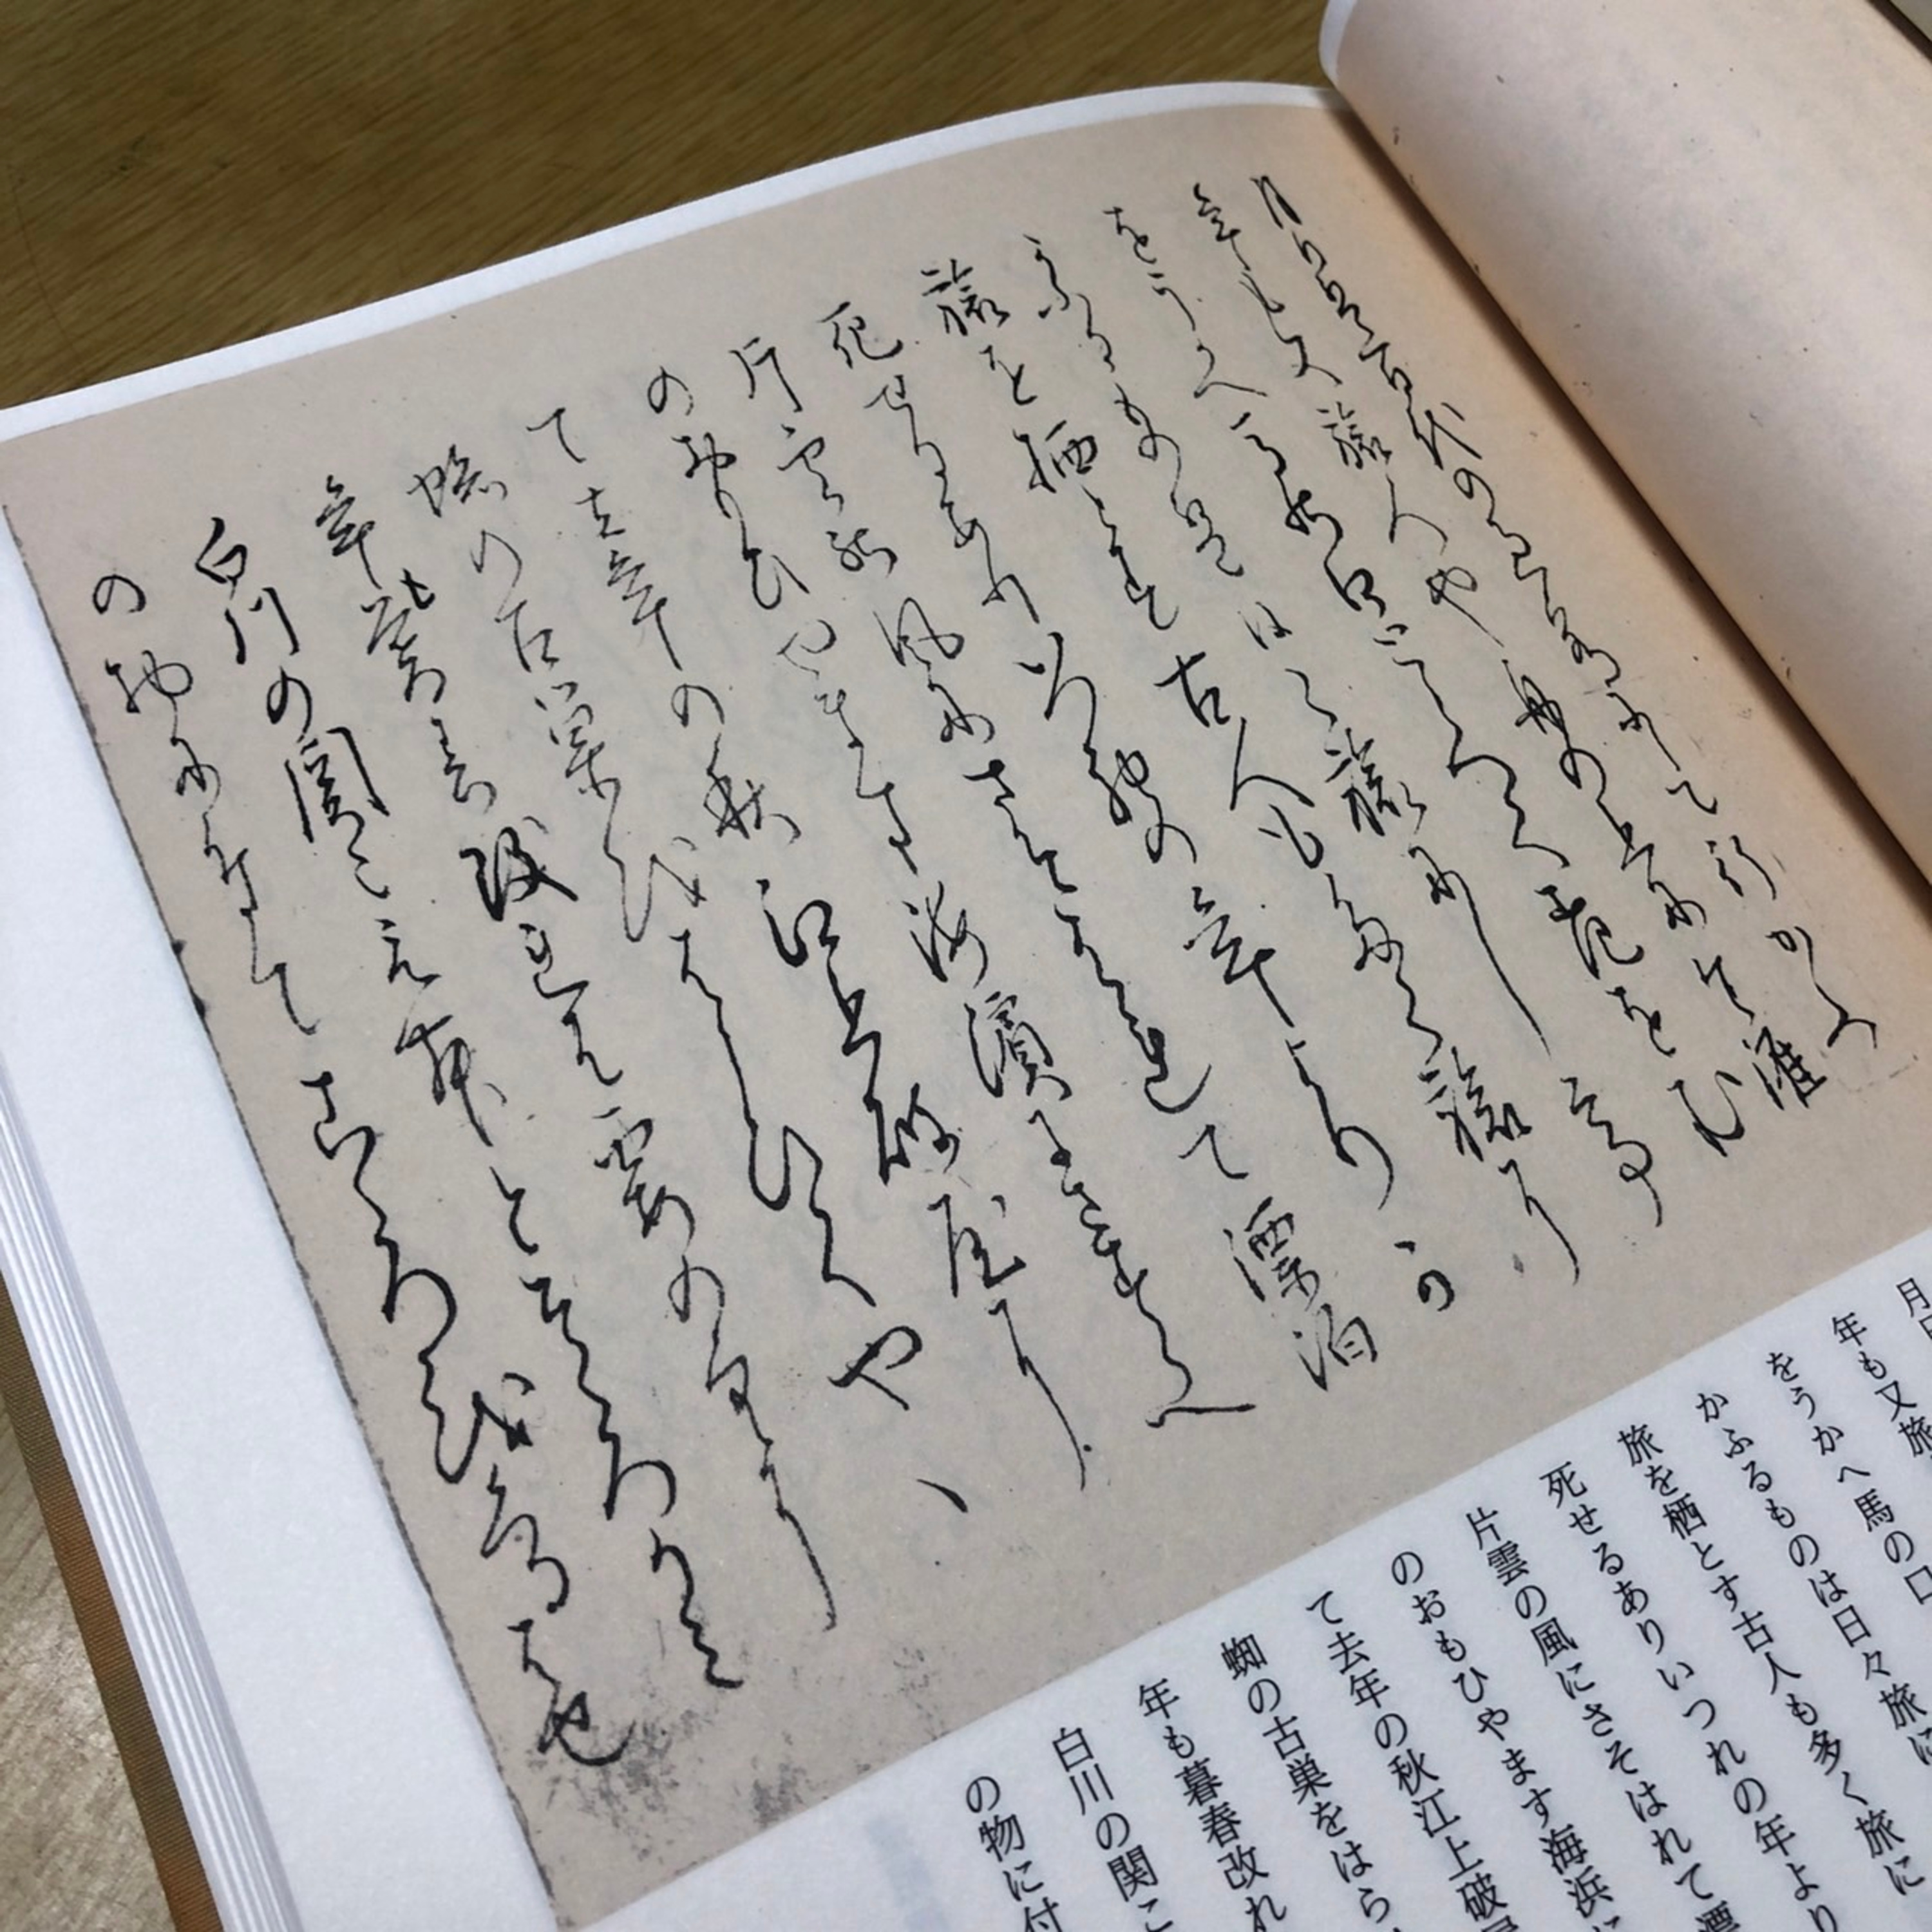 月日は百代の過客にして行かふ
年も又旅人や舟の上に生涯
をうかへ馬の口とらへ老をむ
かふるものは日々旅にして
旅を栖とす古人も多く旅に
死せるありいつれの年よりか
片雲の風にさそはれて漂泊
のおもひやます海濱にさすらへ
て去年の秋江上破屋に
蜘の古巣をはらひてやゝ
年も暮春改れは霞の
白川の関こえむとそゝろかみ
の物に付てこゝろをくるはせ
月日
年も又旅
をうかへ馬の口
かふるものは日々旅に
旅を栖とす古人も多く旅に
死せるありいつれの年より
片雲の風にさそはれて漂
のおもひやます海浜に
て去年の秋江上破屋
蜘の古巣をはら
年も暮春改れ
白川の関こ
の物に付